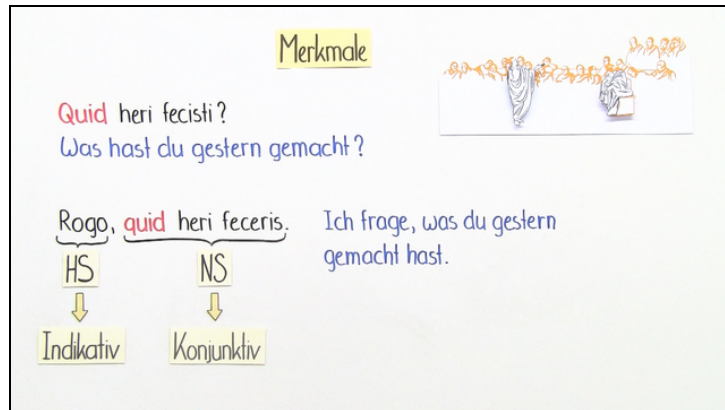 Merkmale
Quid heri fecisti?
Was hast du gestern gemacht?
Rogo, quid heri feceris.
Ich frage, was du gestern
gemacht hast.
HS
NS
Indikativ
Konjunktiv